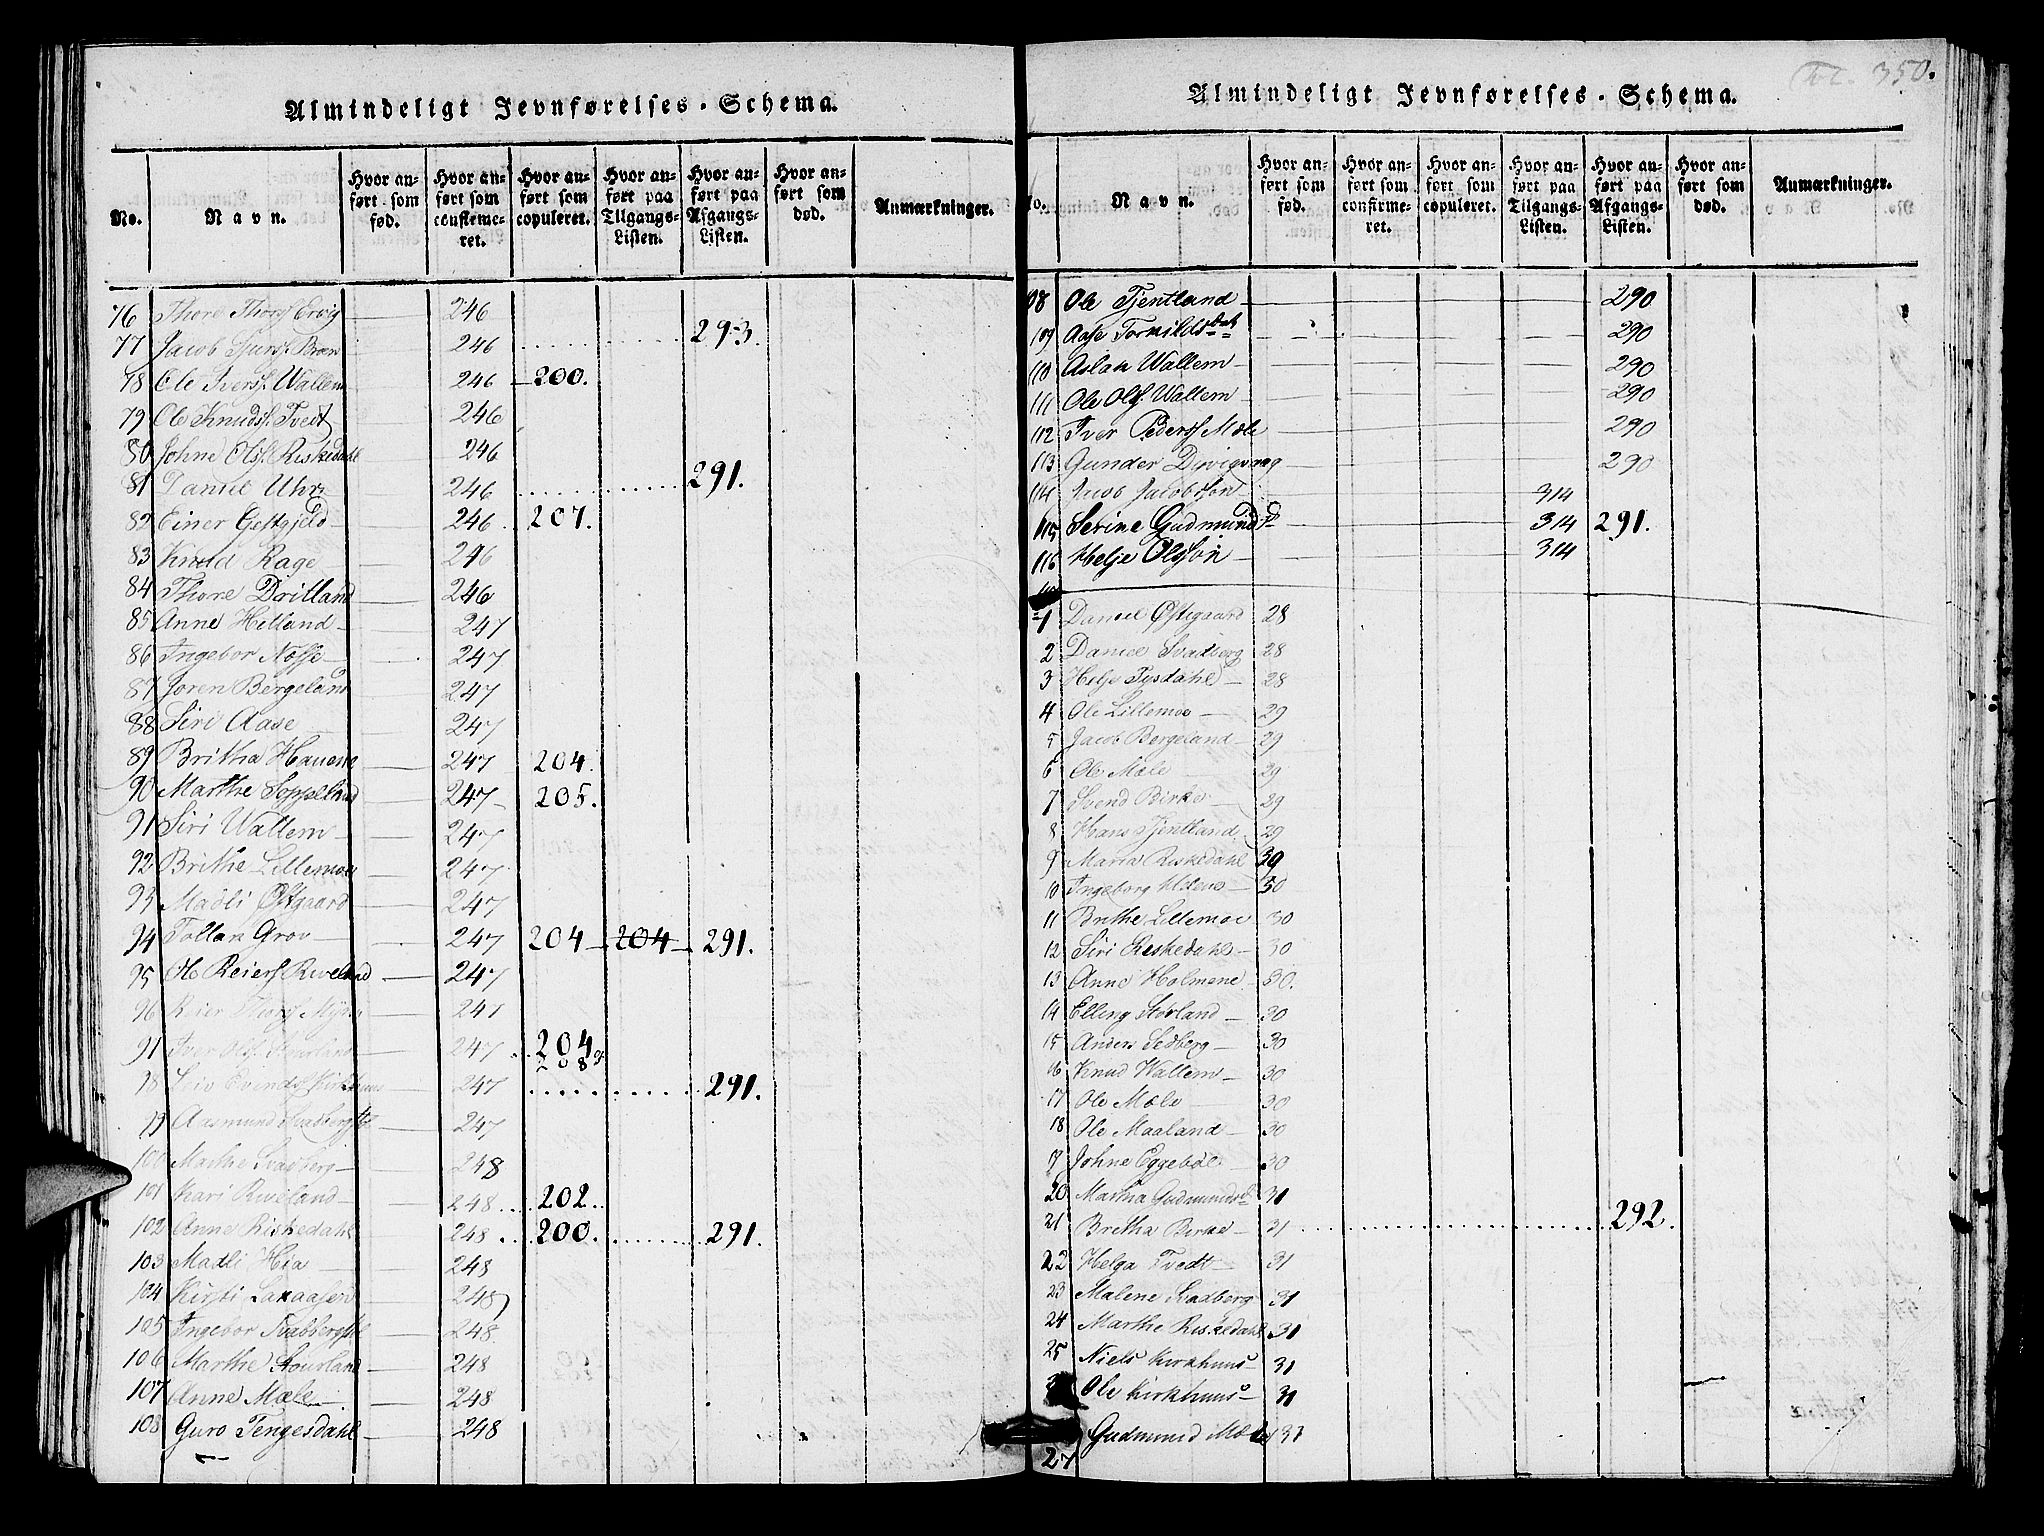 Almindeligt Jevnførelses-Schema.
No. Navn. Hvor anført som fød. Hvor anført som confirmeret. Hvor anført som copuleret. Hvor anført paa Tilgangs-Listen. Hvor anført paa Afgangs-Listen. Hvor anført som død. Anmærkninger.
76 Thore Thorsf. 246
77 Jacob 246 293.
78 Ole Iversf. Wallem 246 200.
79 Ole Knudsf. Tvedt 246
80 Johne Olsf. Riskedahl 246
81 Daniel 246 291.
82 Einer 246 207.
83 Knud Rage 246
84 Thore Dritland 246
85 Anne Helland 247
86 Ingebor 247
87 Joren Bergeland 247
88 Siri Aase 247
89 Britha Hauene 247 204.
90 Marthe 247 205.
91 Siri Wallem 247
92 Brithe Lillemoe 247
93 Madli Østgaard 247
94 Tollak Grov 247 204 204 291.
95 Reiersf. Riveland 247
96 Reier Thorsf. 247
91 Iver Olsf. 247 204 208
98 Kirkhuus 247 291.
99 Aasmund 247
100 Marthe Svadberg 248
101 Kari Riveland 248 202.
102 Anne Riskedahl 248 200. 291.
103 Madli Hia 248
104 Kirsti 248
105 Ingebor 248
106 Marthe 248
107 Anne Mæle 248
108 Guro Tengesdahl 248
350.
Almindeligt Jevnførelses-Schema.
No. Navn. Hvor anført som fød. Hvor anført som confirmeret. Hvor anført som copuleret. Hvor anført paa Tilgangs-Listen. Hvor anført paa Afgangs-Listen. Hvor anført som død. Anmærkninger.
108 Ole Tjentland 290
109 Aase 290
110 Aslak Wallem 290
111 Ole Olsf. Wallem 290
112 Iver Pedersf. Mæle 290
113 Gunder 290
114 Jacobsøn 314
115 Serine 314 291.
116 Helje Olssøn 314
1 Daniel Østegaard 28
2 Daniel Svadberg 28
3 Helje Tysdahl 28
4 Ole Lillemoe 29
5 Jacob Bergeland 29
6 Ole Mæle 29
7 Svend Birke 29
8 Hans Tjentland 29
9 Maria Riskedahl 39
10 Ingeborg 30
11 Brithe Lillemoe 30
12 Siri Riskedahl 30
13 Anne Holmene 30.
14 Elling 30
15 Anders Sedberg 30
16 Knud Wallem 30
17 Ole Mæle 30
18 Ole Maaland 30
19 Johne Eggebøe 30
20 Martha 31
21 Bretha Birke 31 292.
22 Helga Tvedt 31
23 Malene Svadberg 31
24 Marthe Riskedahl 31
25 Niels Kirkhuus 31
Ole Kirkhuus 31
27 Gudmund Mæle 31